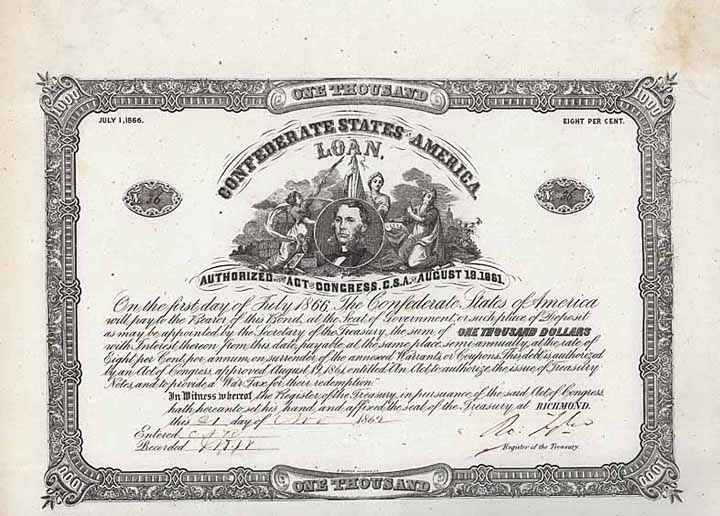 ONE THOUSAND
JULY 1, 1866.
EIGHT PER CENT.
CONFEDERATE STATES OF AMERICA
LOAN,
No. 36
No. 36
AUTHORIZED BY ACT OF CONGRESS, C.S.A. OF AUGUST 19, 1861.
On the first day of July 1866, The Confederate States of America
will pay to the Bearer of this Bond, at the Seal of Government, or such place of Deposit
as may be appointed by the Secretary of the Treasury, the sum of ONE THOUSAND DOLLARS
with Interest thereon from this date, payable at the same place, semi-annually, at the rate of
Eight per Cent. per annum, on surrender of the annexed Warrants or Coupons. This debt is authorized
by an Act of Congress, approved August 19, 1861, entitled An Act to authorize the issue of Treasury
Notes, and to provide a War Tax for their redemption.
In Witness whereof, the Register of the Treasury, in pursuance of the said Act of Congress,
hath hereunto set his hand, and affixed the seal of the Treasury, at RICHMOND,
this 21 day of 1862
Entered
Recorded
Ro: Tyler
Register of the Treasury.
ONE THOUSAND